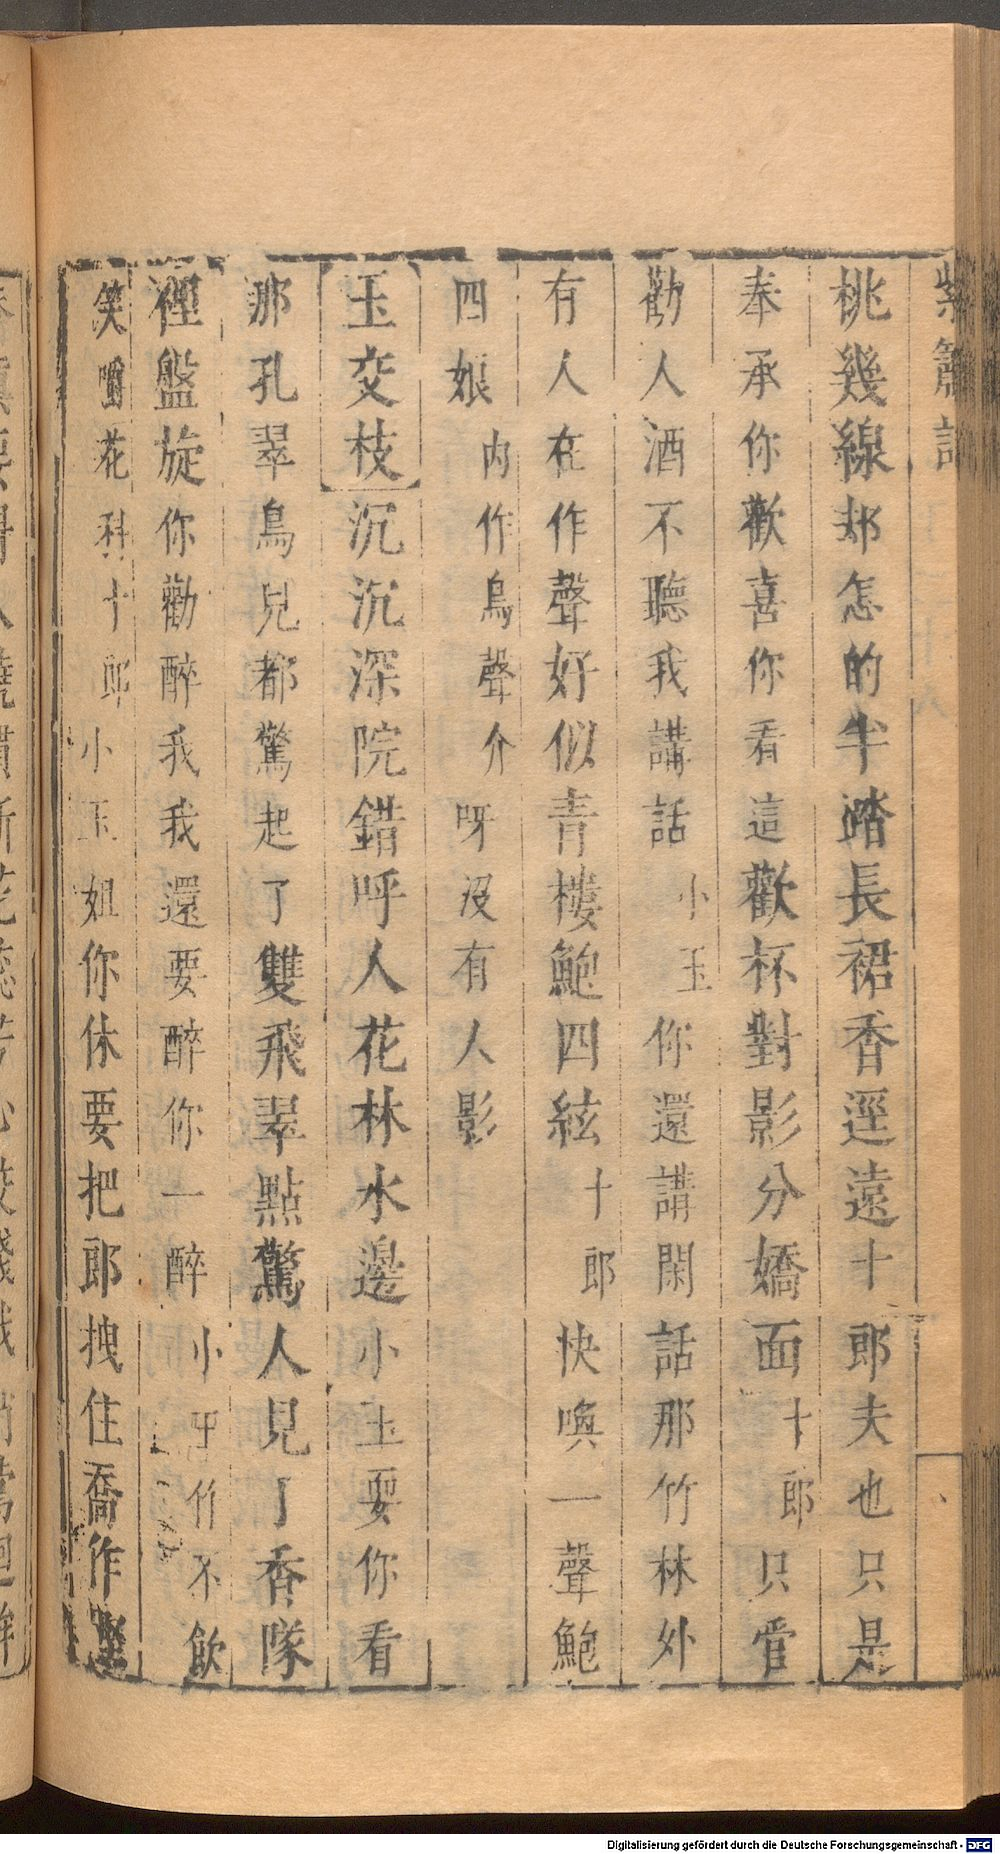 紫簫記
桃幾線却怎的半踏長裙香逕遠十郎夫也只是
奉承你歡喜你看這歡杯對影分嬌面十郎只管
勸人酒不聽我講話小玉你還講閑話那竹林外
有人在作聲好似青樓鮑四絃十郎快喚一聲鮑
四娘内作鳥聲介呀沒有人影
玉交枝沉沉深院錯呼人花林水邊小玉耍你看
那孔翠鳥兒都驚起了雙飛翠點驚人見了香隊
裡盤旋你勸醉我我還要醉你一醉小玉作不飲
笑嚼花科十郎小玉姐你休要把郎拽住喬作
Digitalisierung gefördert durch die Deutsche Forschungsgemeinschaft - DFG